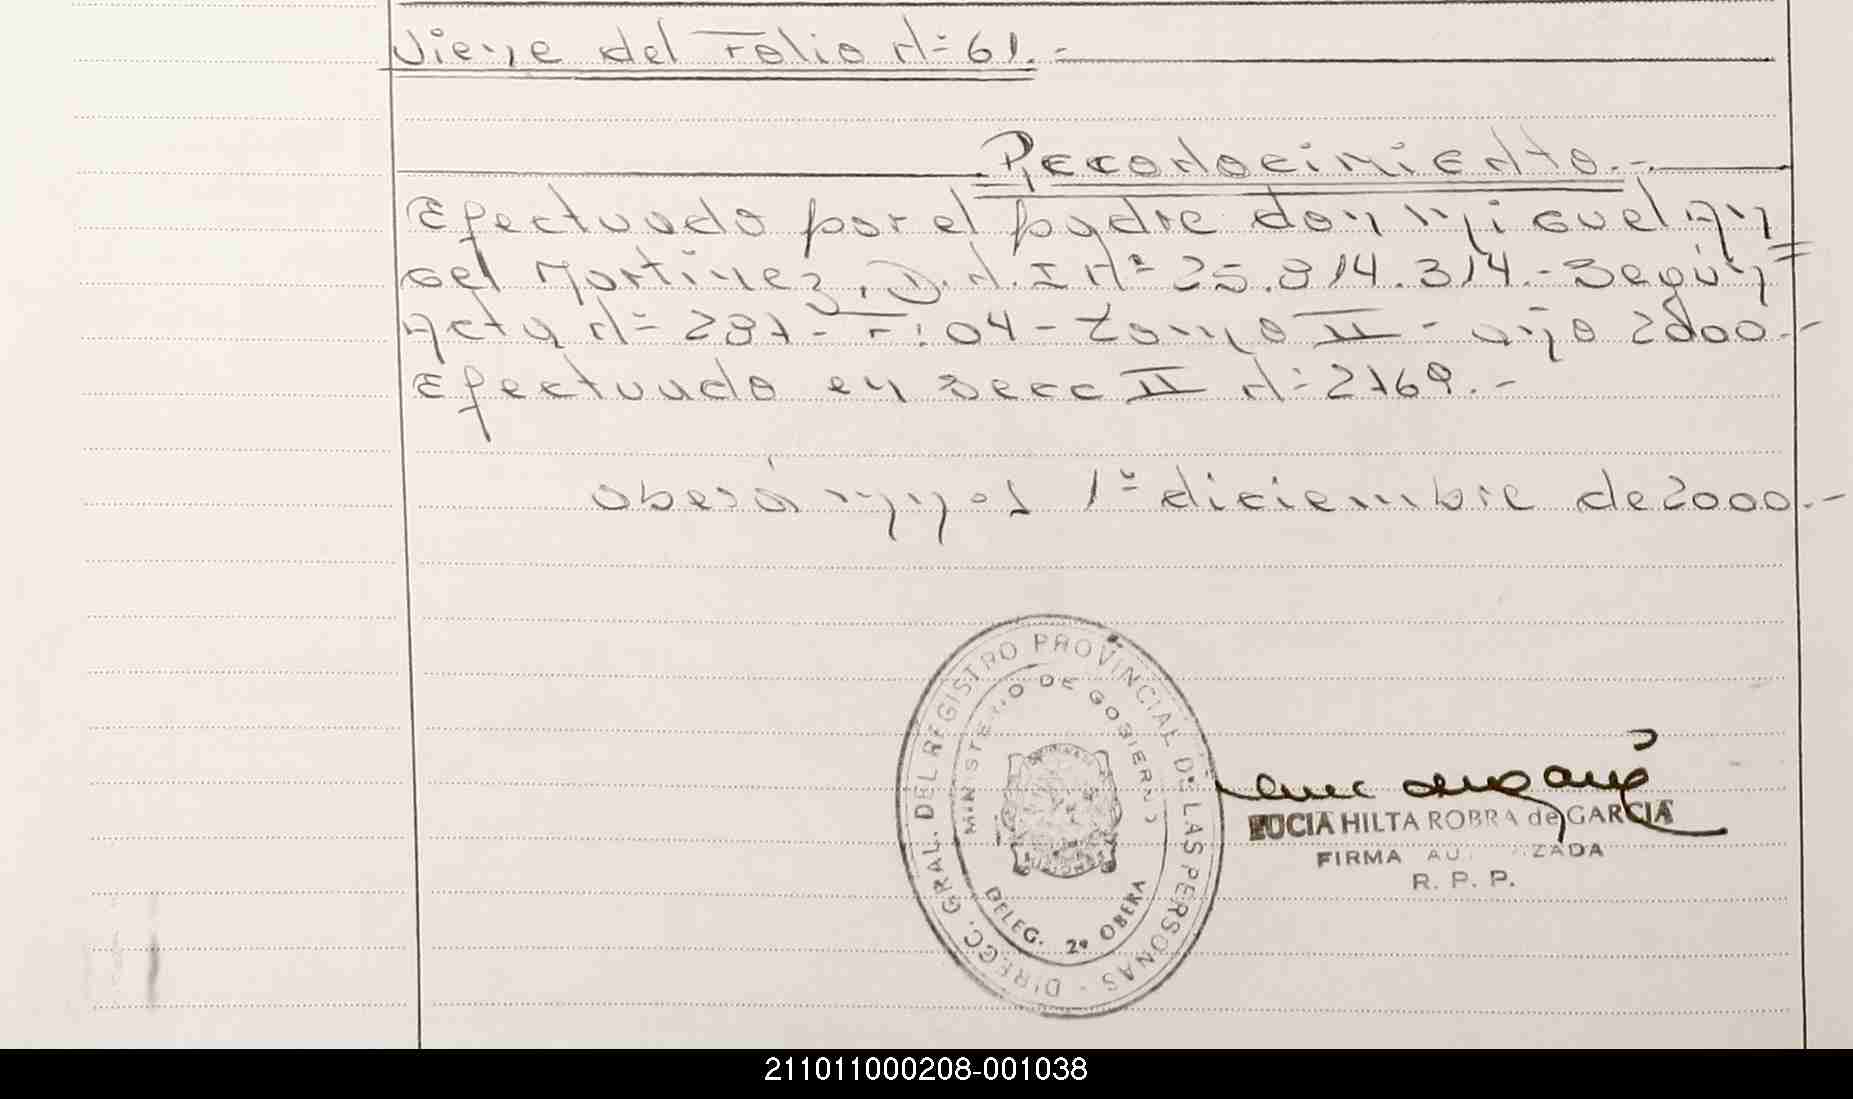 Viene del Folio Nº 61.-
Reconocimiento.-
Efectuado por el padre don Miguel An
gel Martinez, D.N.I Nº 25.814.314.- Según
Acta Nº 287- F: 04- Tomo II - año 2000.-
Efectuado en Secc II Nº 2769.-
Oberá Mnes 1º diciembre de 2000.-
DIRECC. GRAL. DEL REGISTRO PROVINCIAL DE LAS PERSONAS -
MINISTERIO DE GOBIERNO
DELEG. 2º OBERA
LUCIA HILTA ROBRA de GARCIA
FIRMA AUTORIZADA
R. P. P.
211011000208-001038